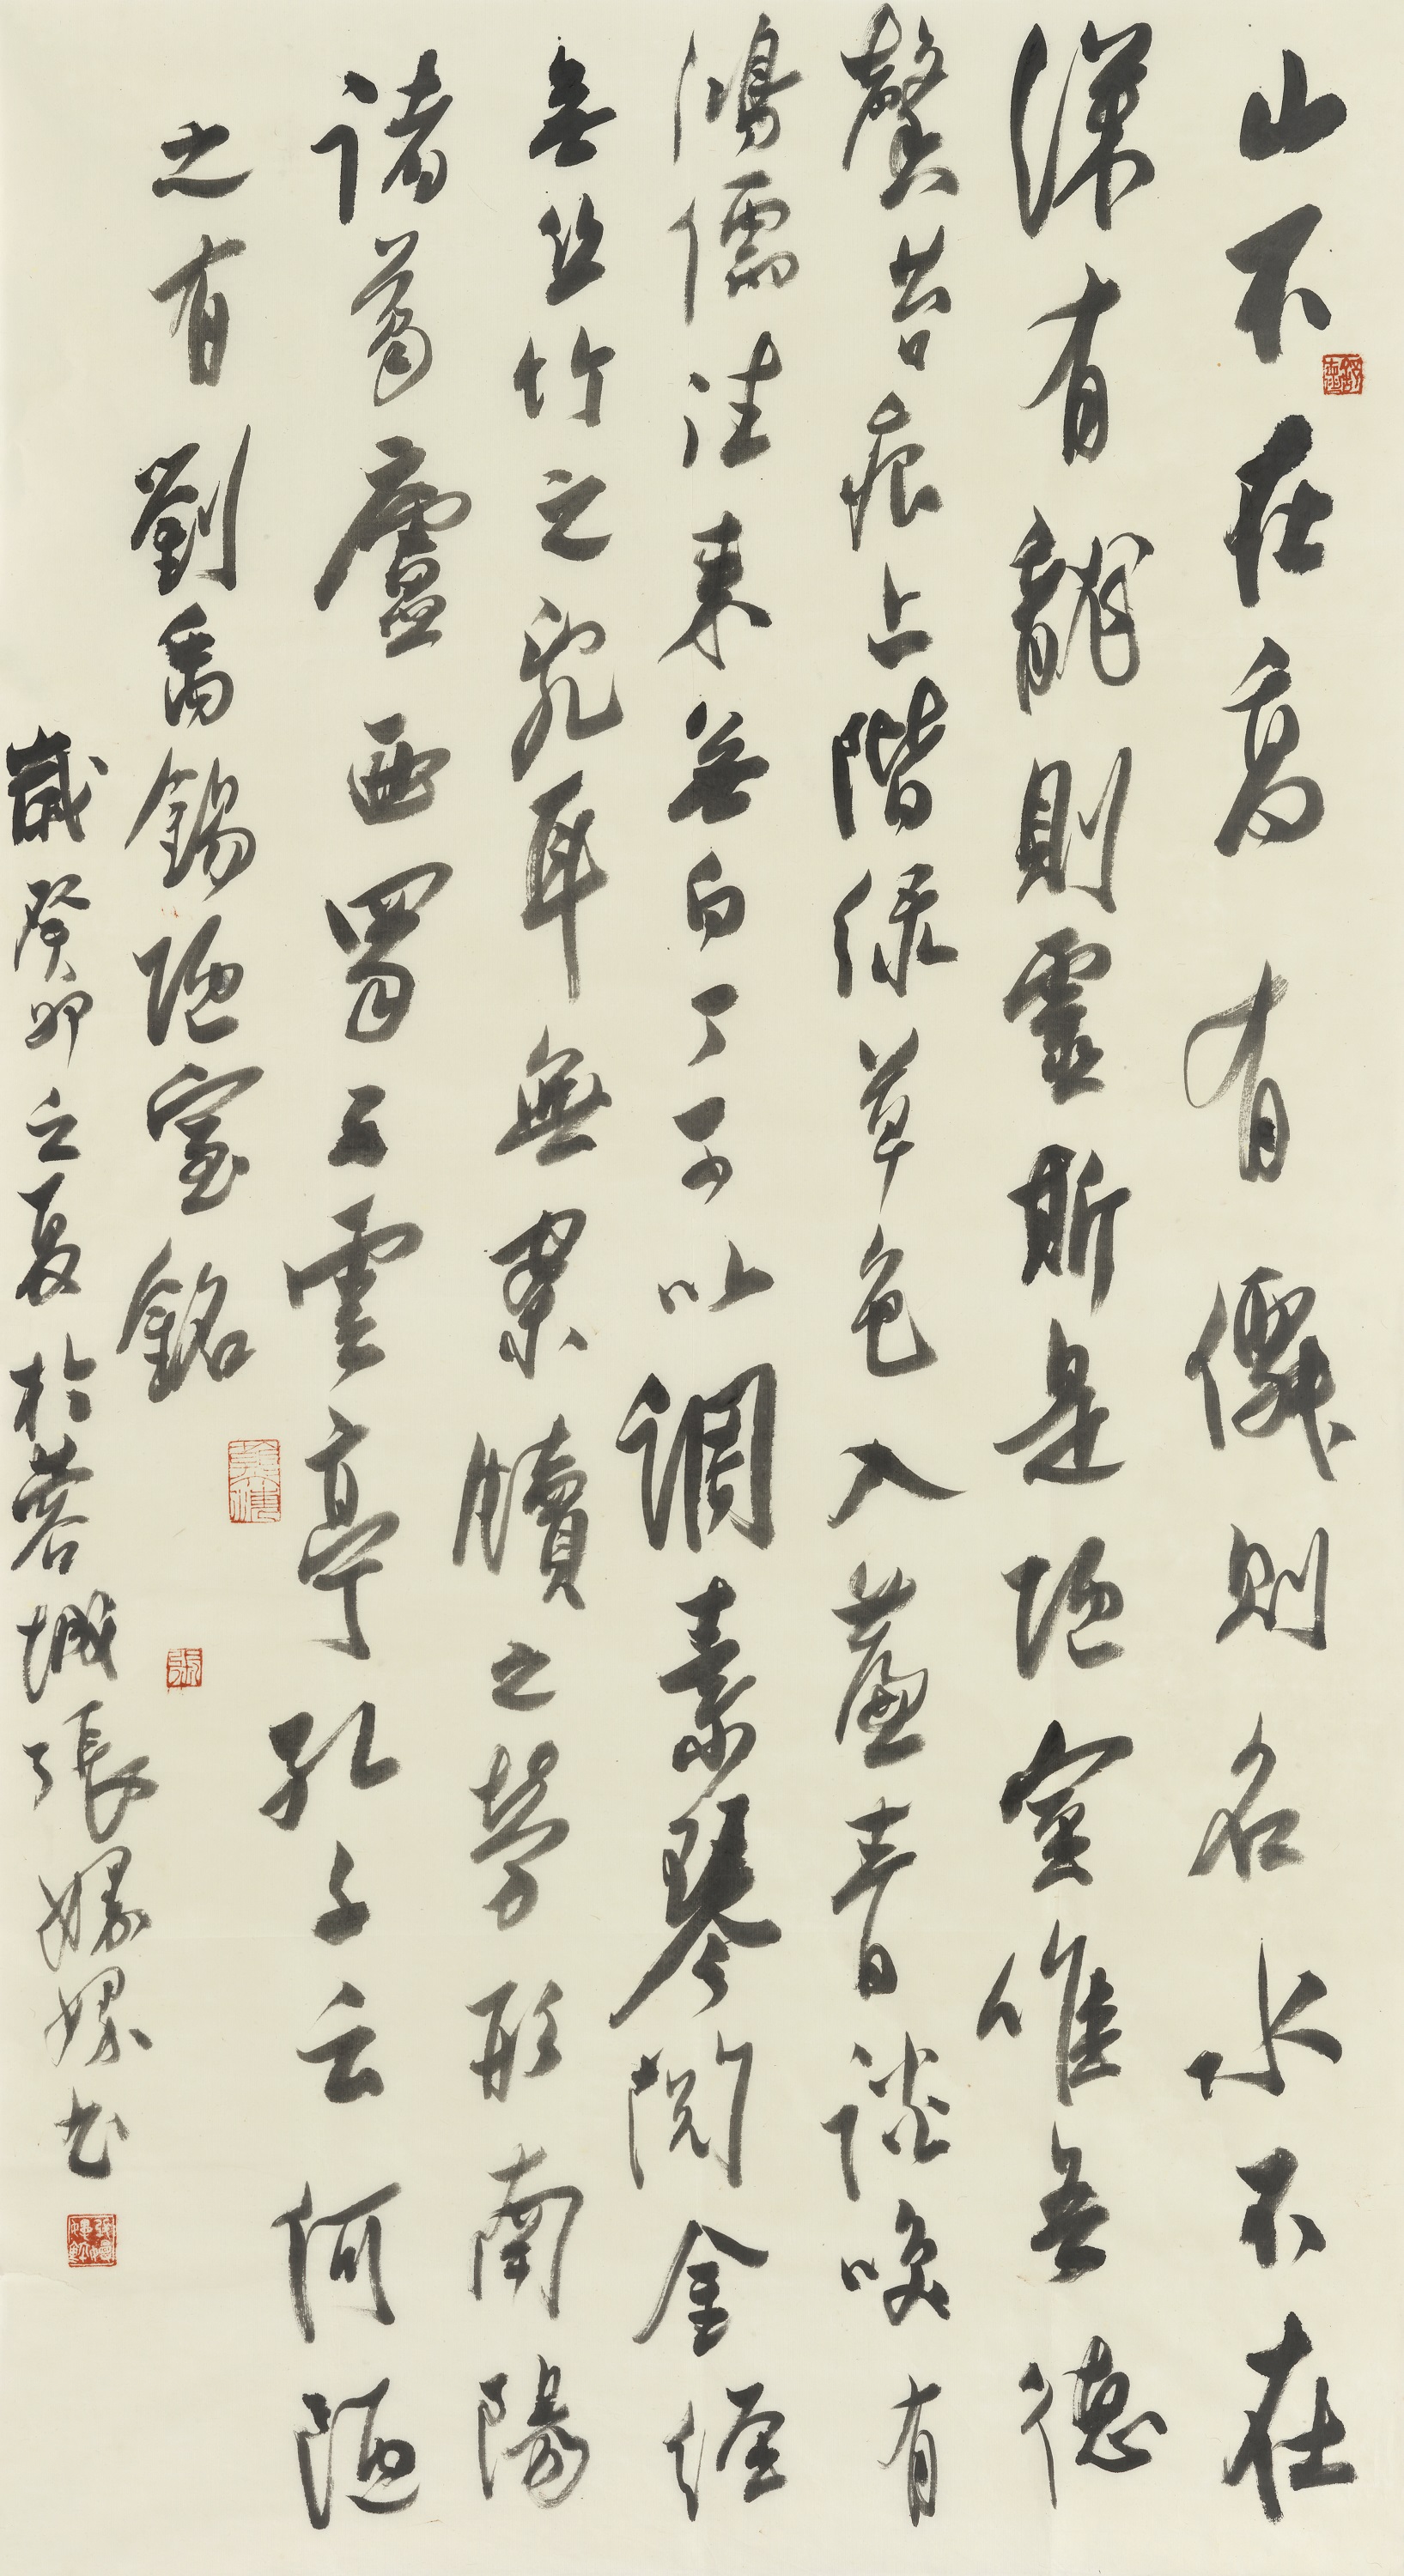 山不在高有僊則名水不在
深有龍則靈斯是陋室唯吾德
馨苔痕上階綠草色入簾青談唤有
鴻儒往来無白丁可以調素琴閱金經
無丝竹之亂耳無案牘之勞形南陽
諸葛廬西蜀子雲亭孔子云何陋
之有 劉禹錫陋室銘
歲癸卯之夏於蓉城張嫘书